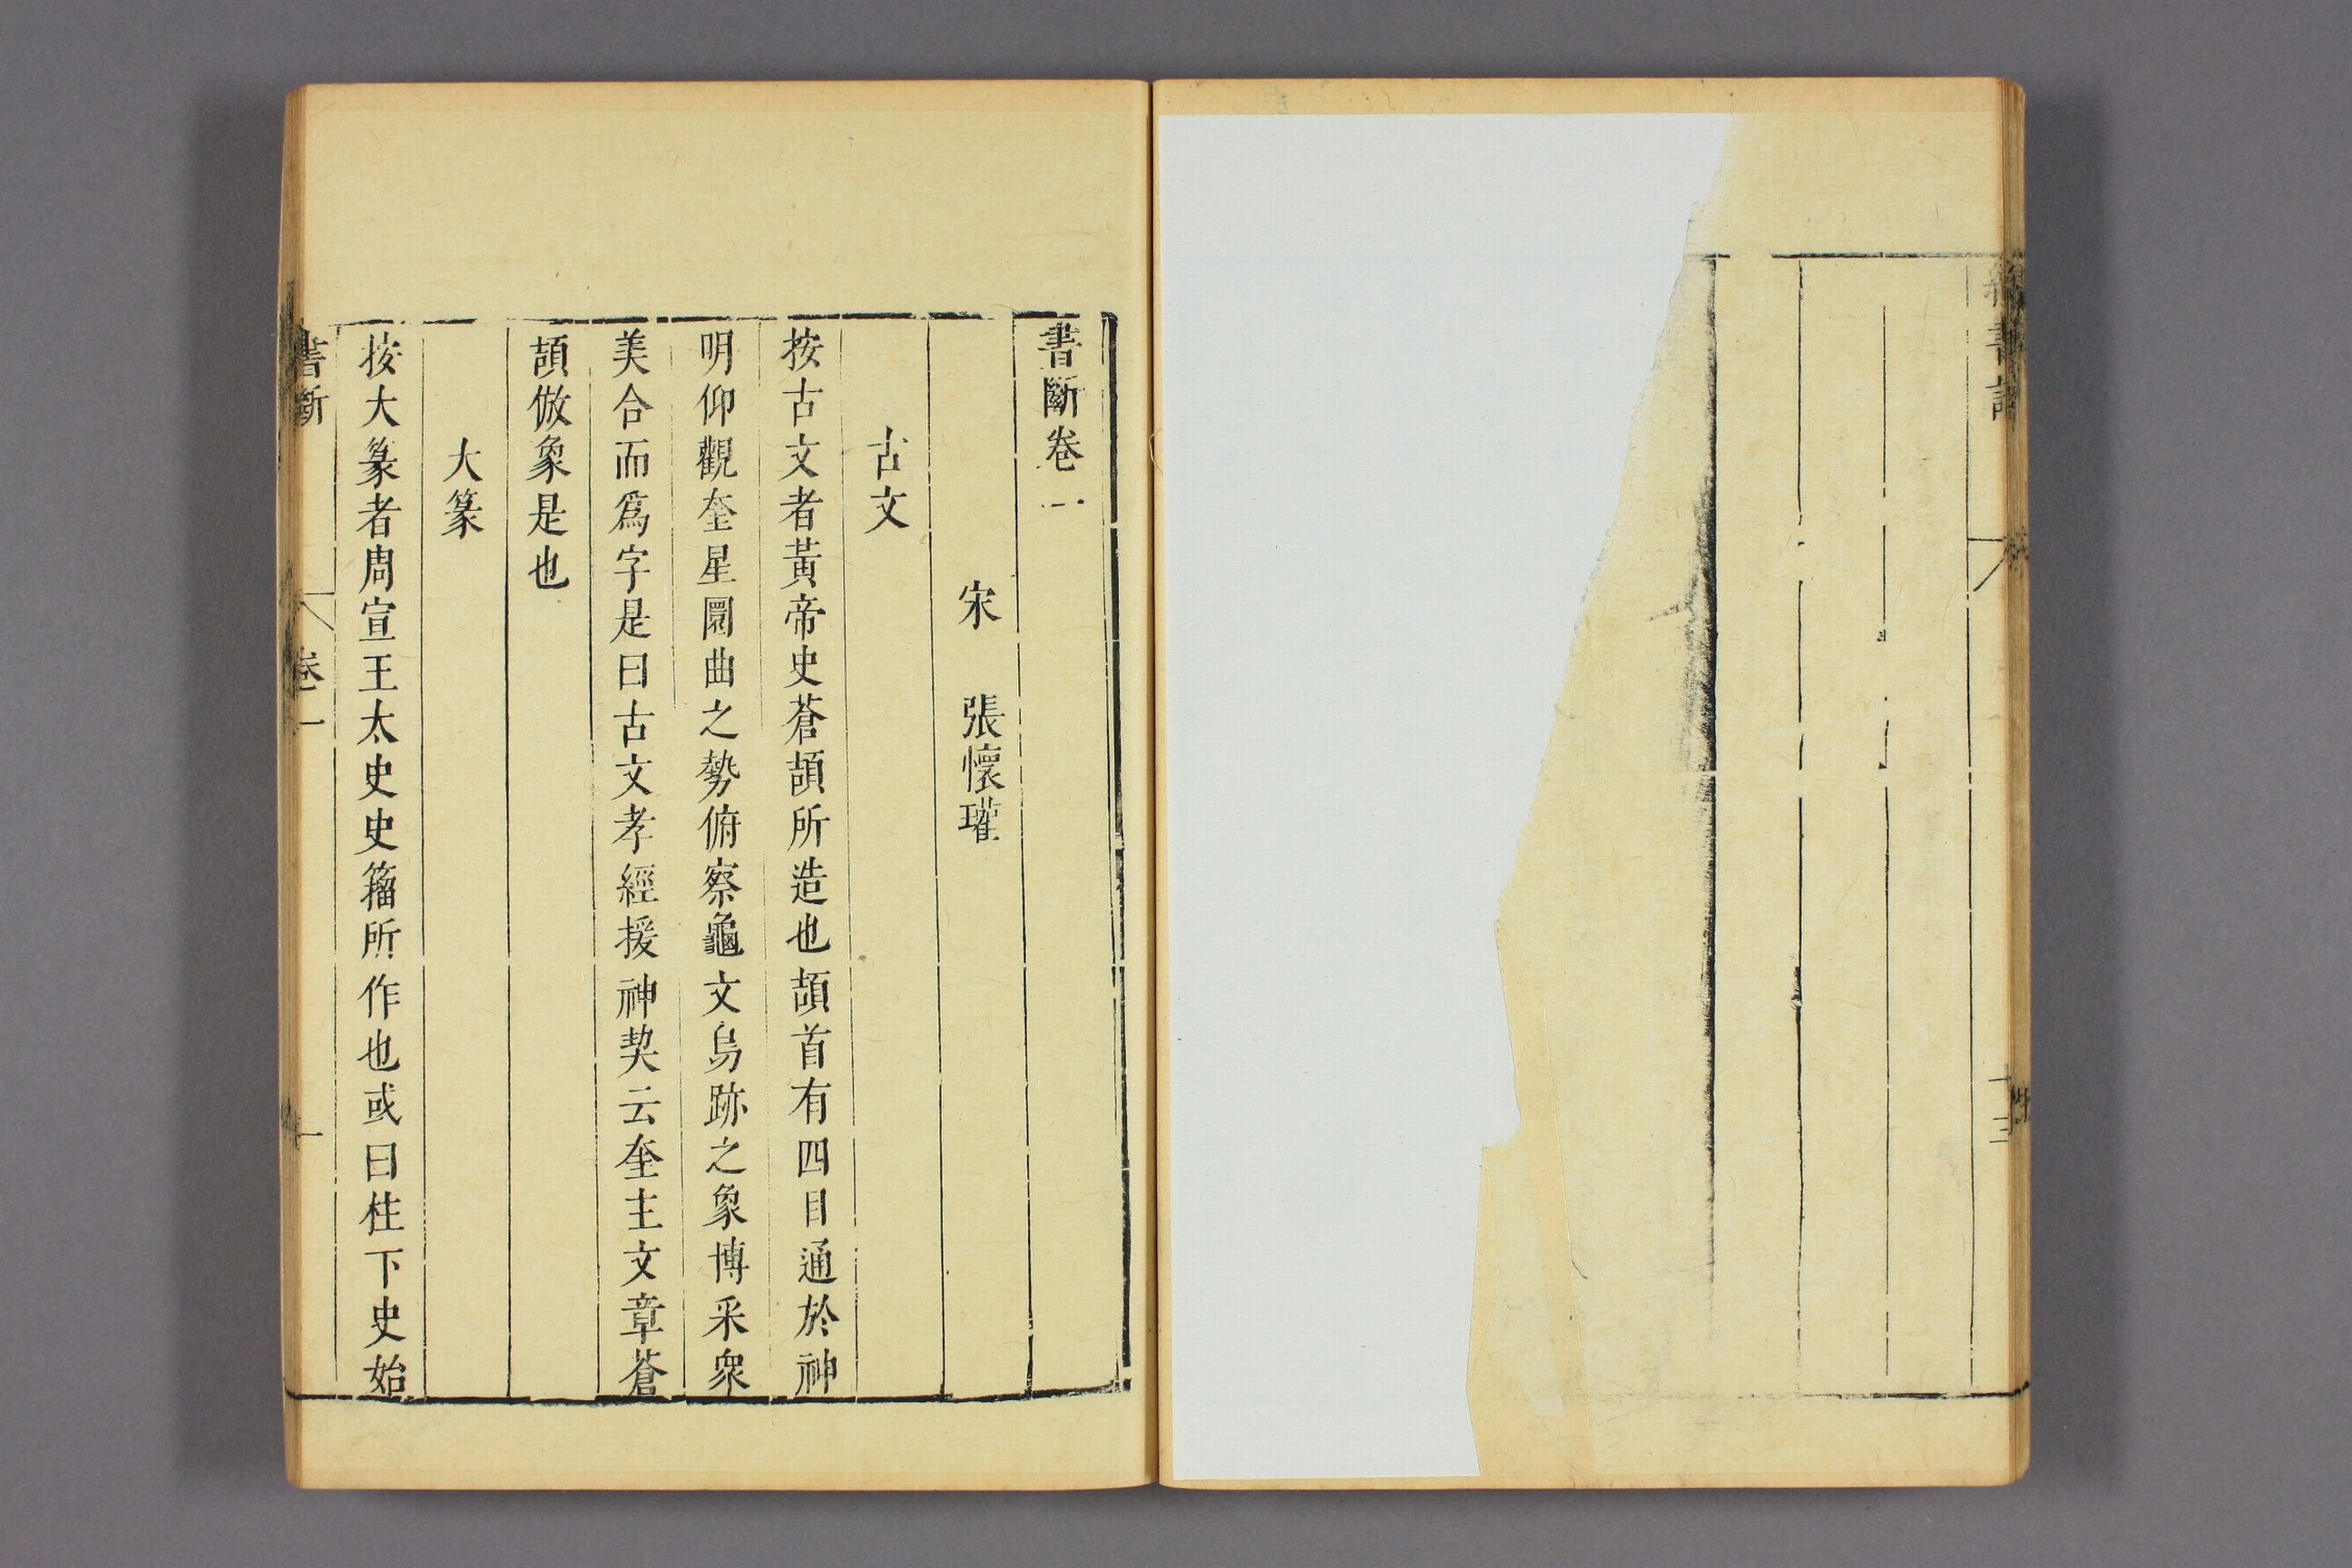 續書譜
十三
書斷卷一
宋 張懷瓘
古文
按古文者黃帝史蒼頡所造也頡首有四目通於神
明仰觀奎星圜曲之勢俯察龜文鳥跡之象博采衆
美合而爲字是曰古文孝經援神契云奎主文章蒼
頡倣象是也
大篆
按大篆者周宣王太史史籀所作也或曰柱下史始
書斷
卷一
一